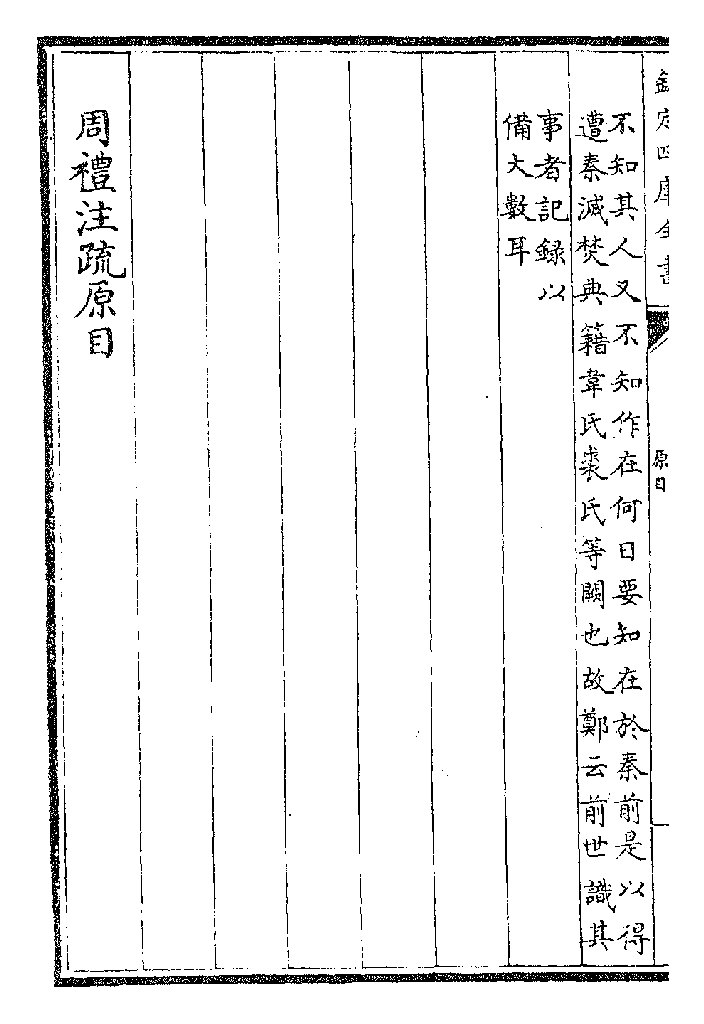 欽定四庫全書
原目
不知其人又不知作在何日要知在於秦前是以得
遭秦滅焚典籍韋氏裘氏等闕也故鄭云前世識其
事者記録以
備大數耳
周禮注疏原目